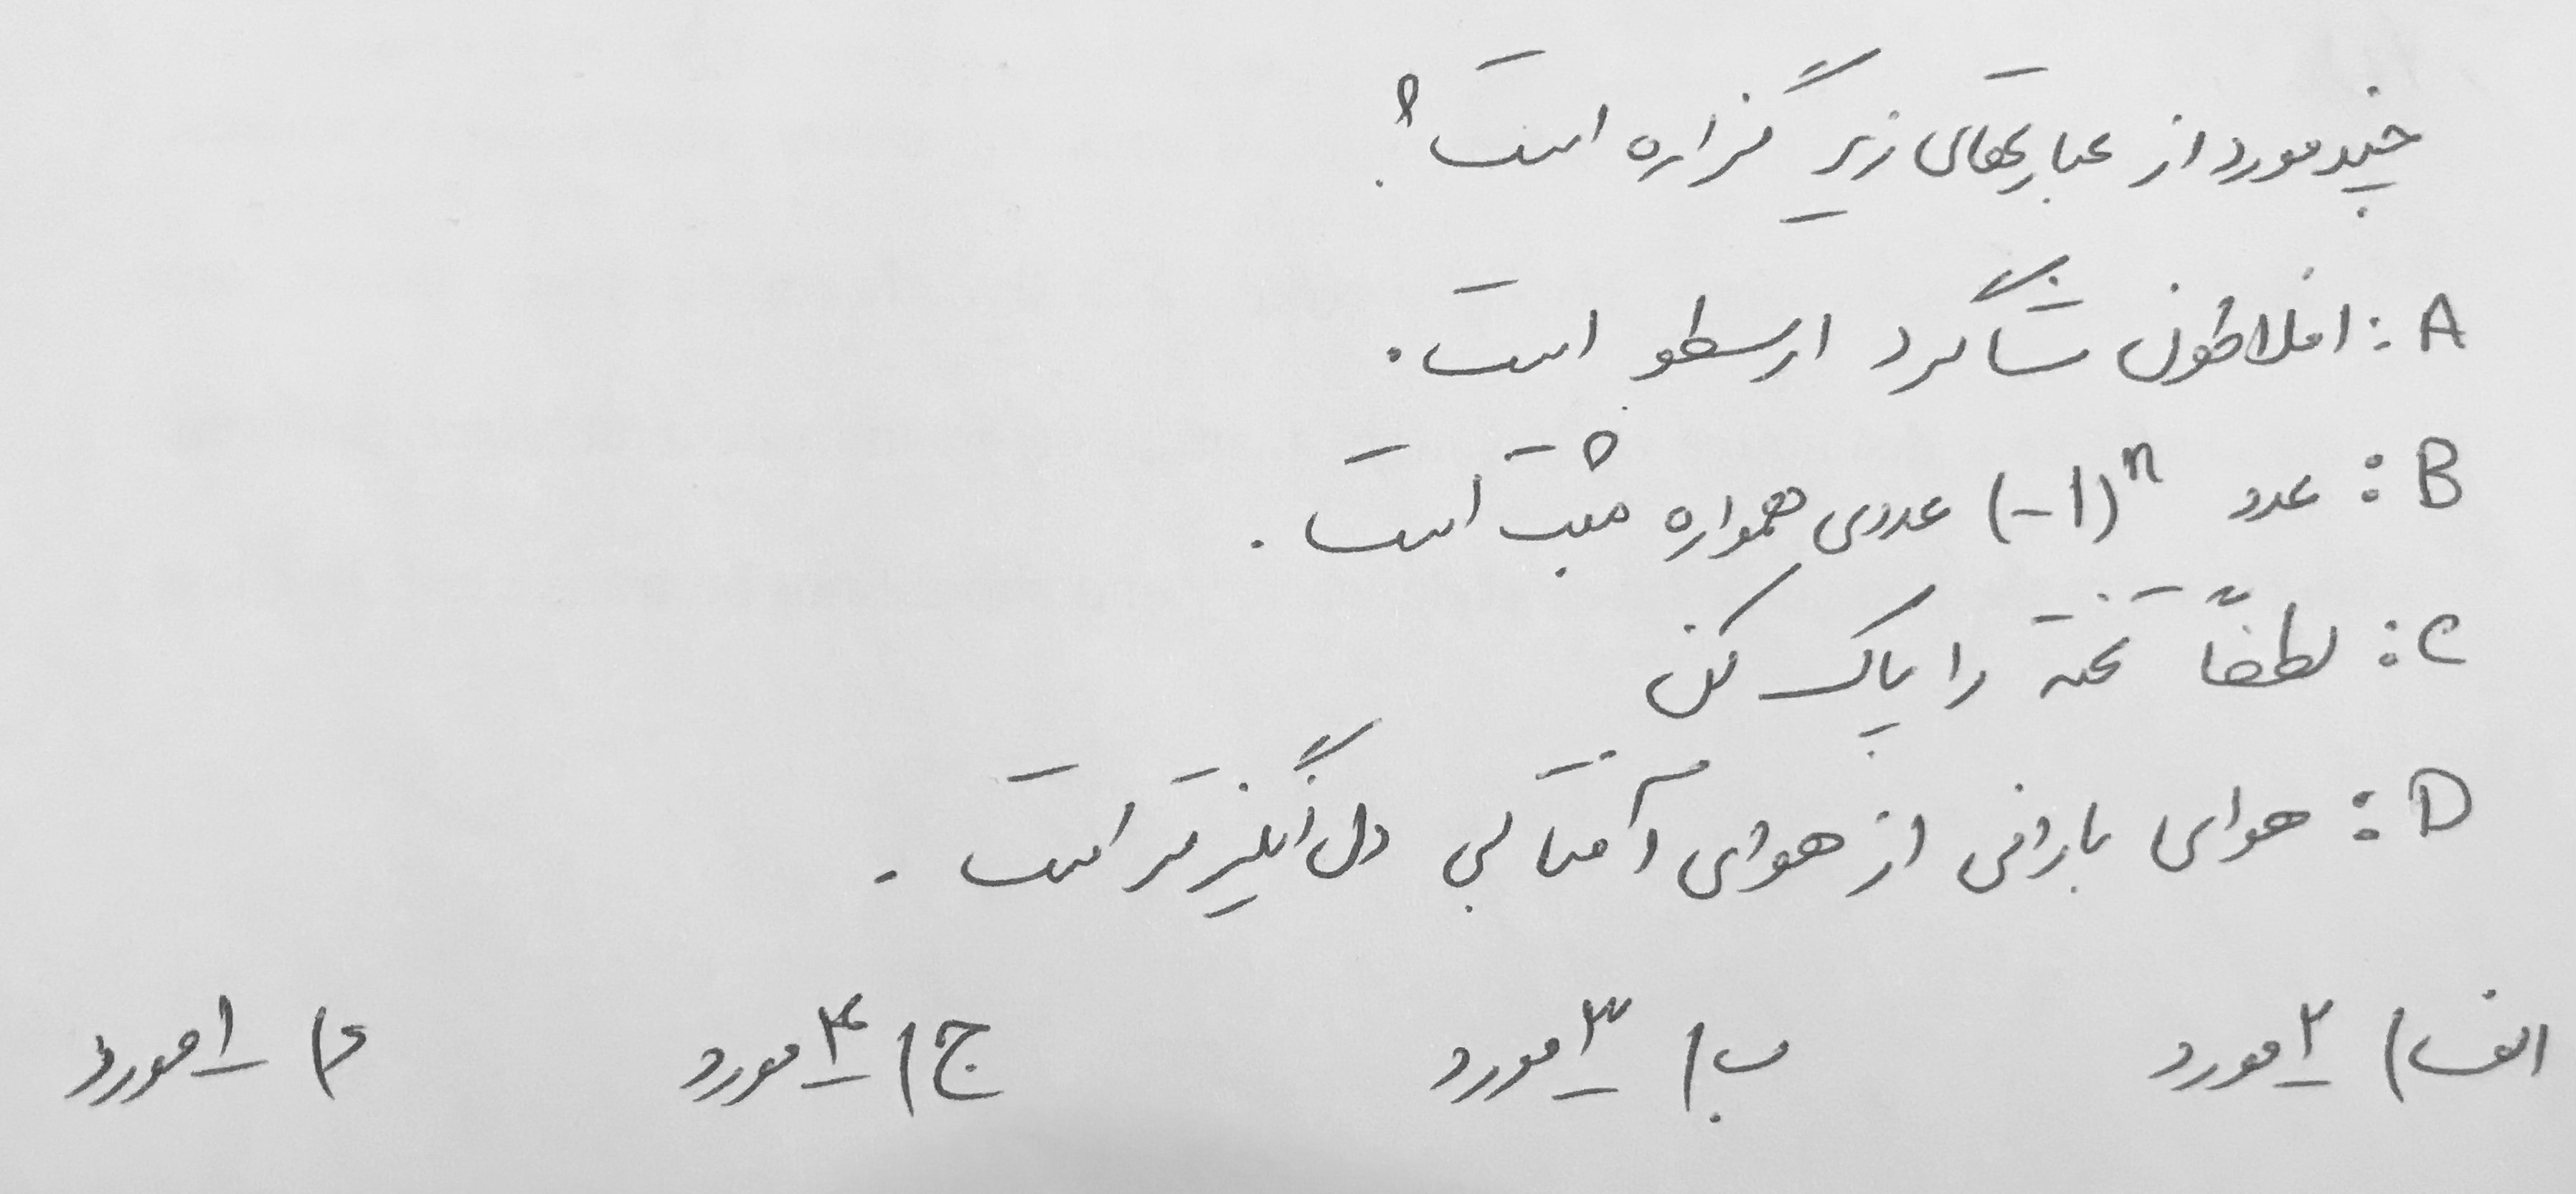 چند مورد از عبارتهای زیر گزاره است؟
A: افلاطون شاگرد ارسطو است.
B: عدد (-1)^n عددی همواره مثبت است.
C: لطفاً تخته را پاک کن
D: هوای بارانی از هوای آفتابی دل انگیزتر است.
الف) ۲ مورد ب) ۳ مورد ج) ۴ مورد د) ۱ مورد